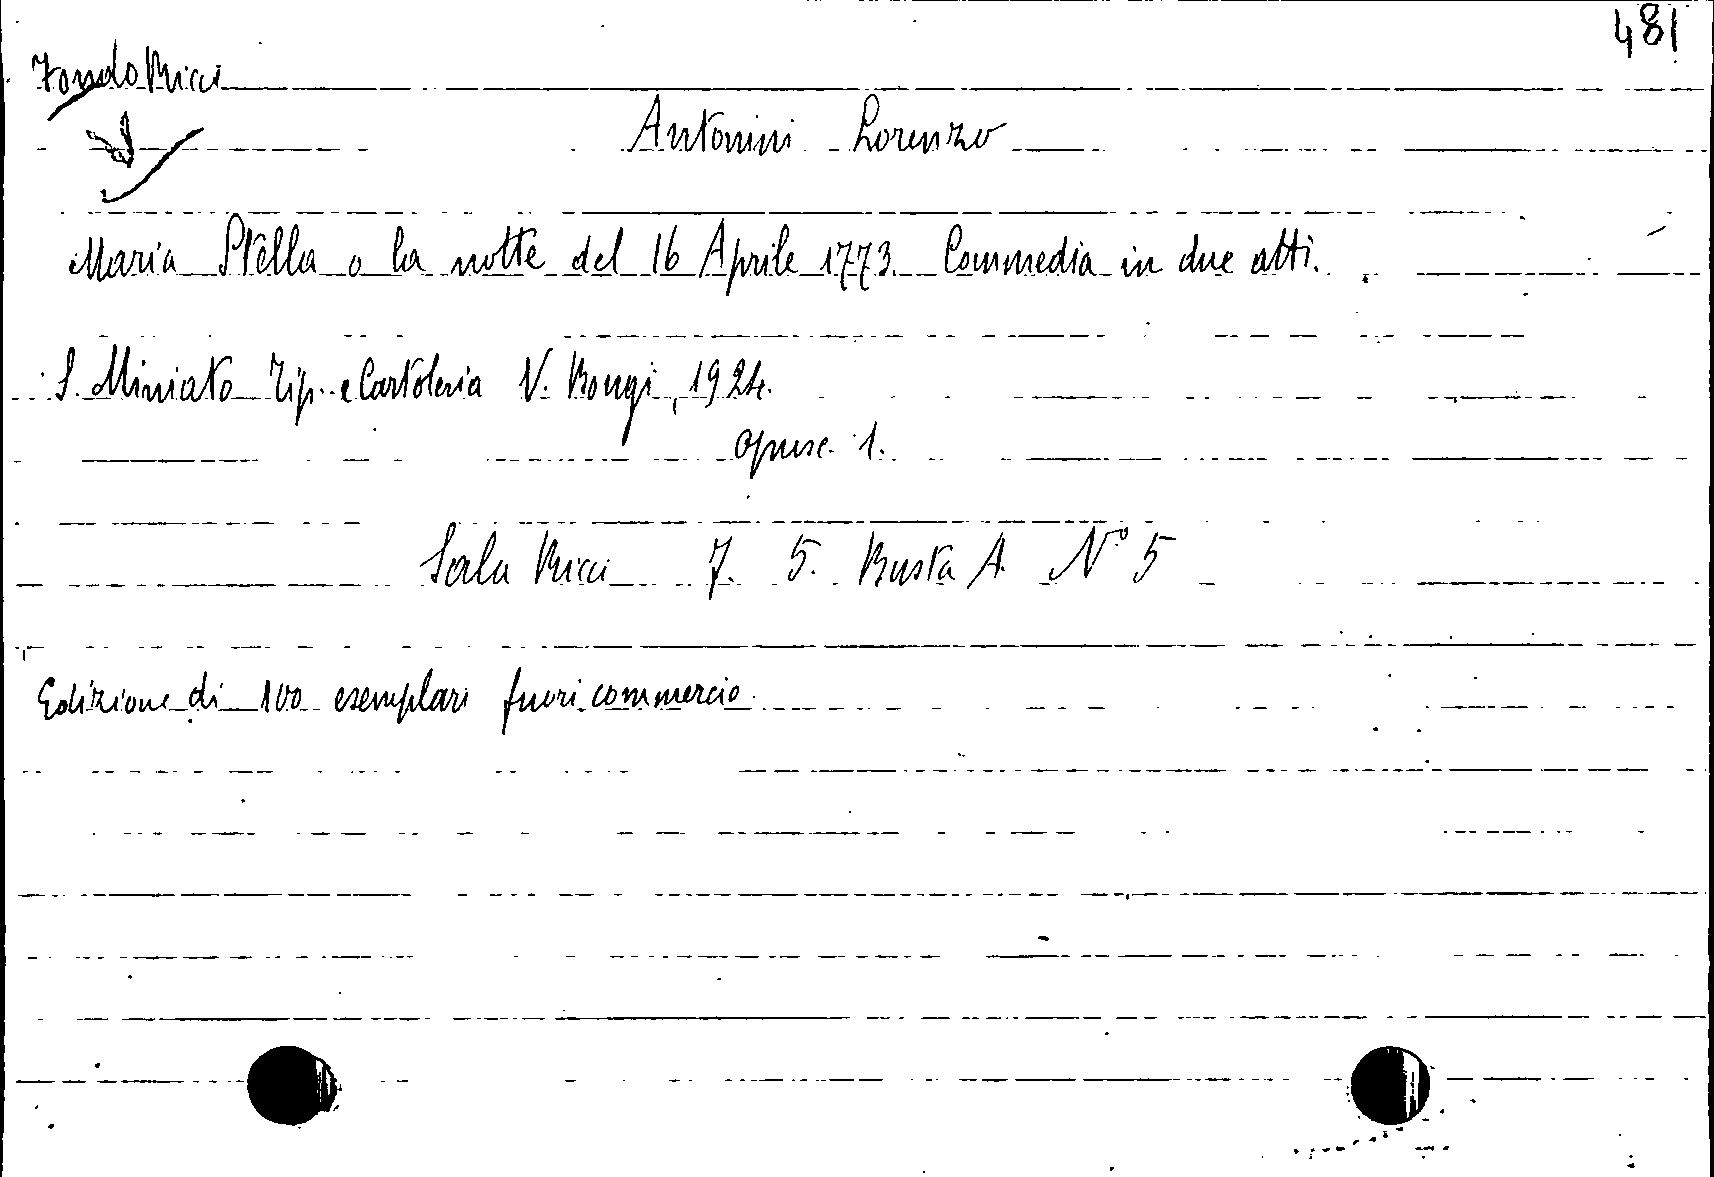 481
Fondo Ricci
Antonini Lorenzo
Maria Stella o la notte del 16 Aprile 1773. Commedia in due atti.
S. Miniato Tip. e Cartoleria V. Bongi, 1924.
opusc. 1.
Sala Ricci 7. 5. Busta A. N° 5
Edizione di 100 esemplari fuori commercio